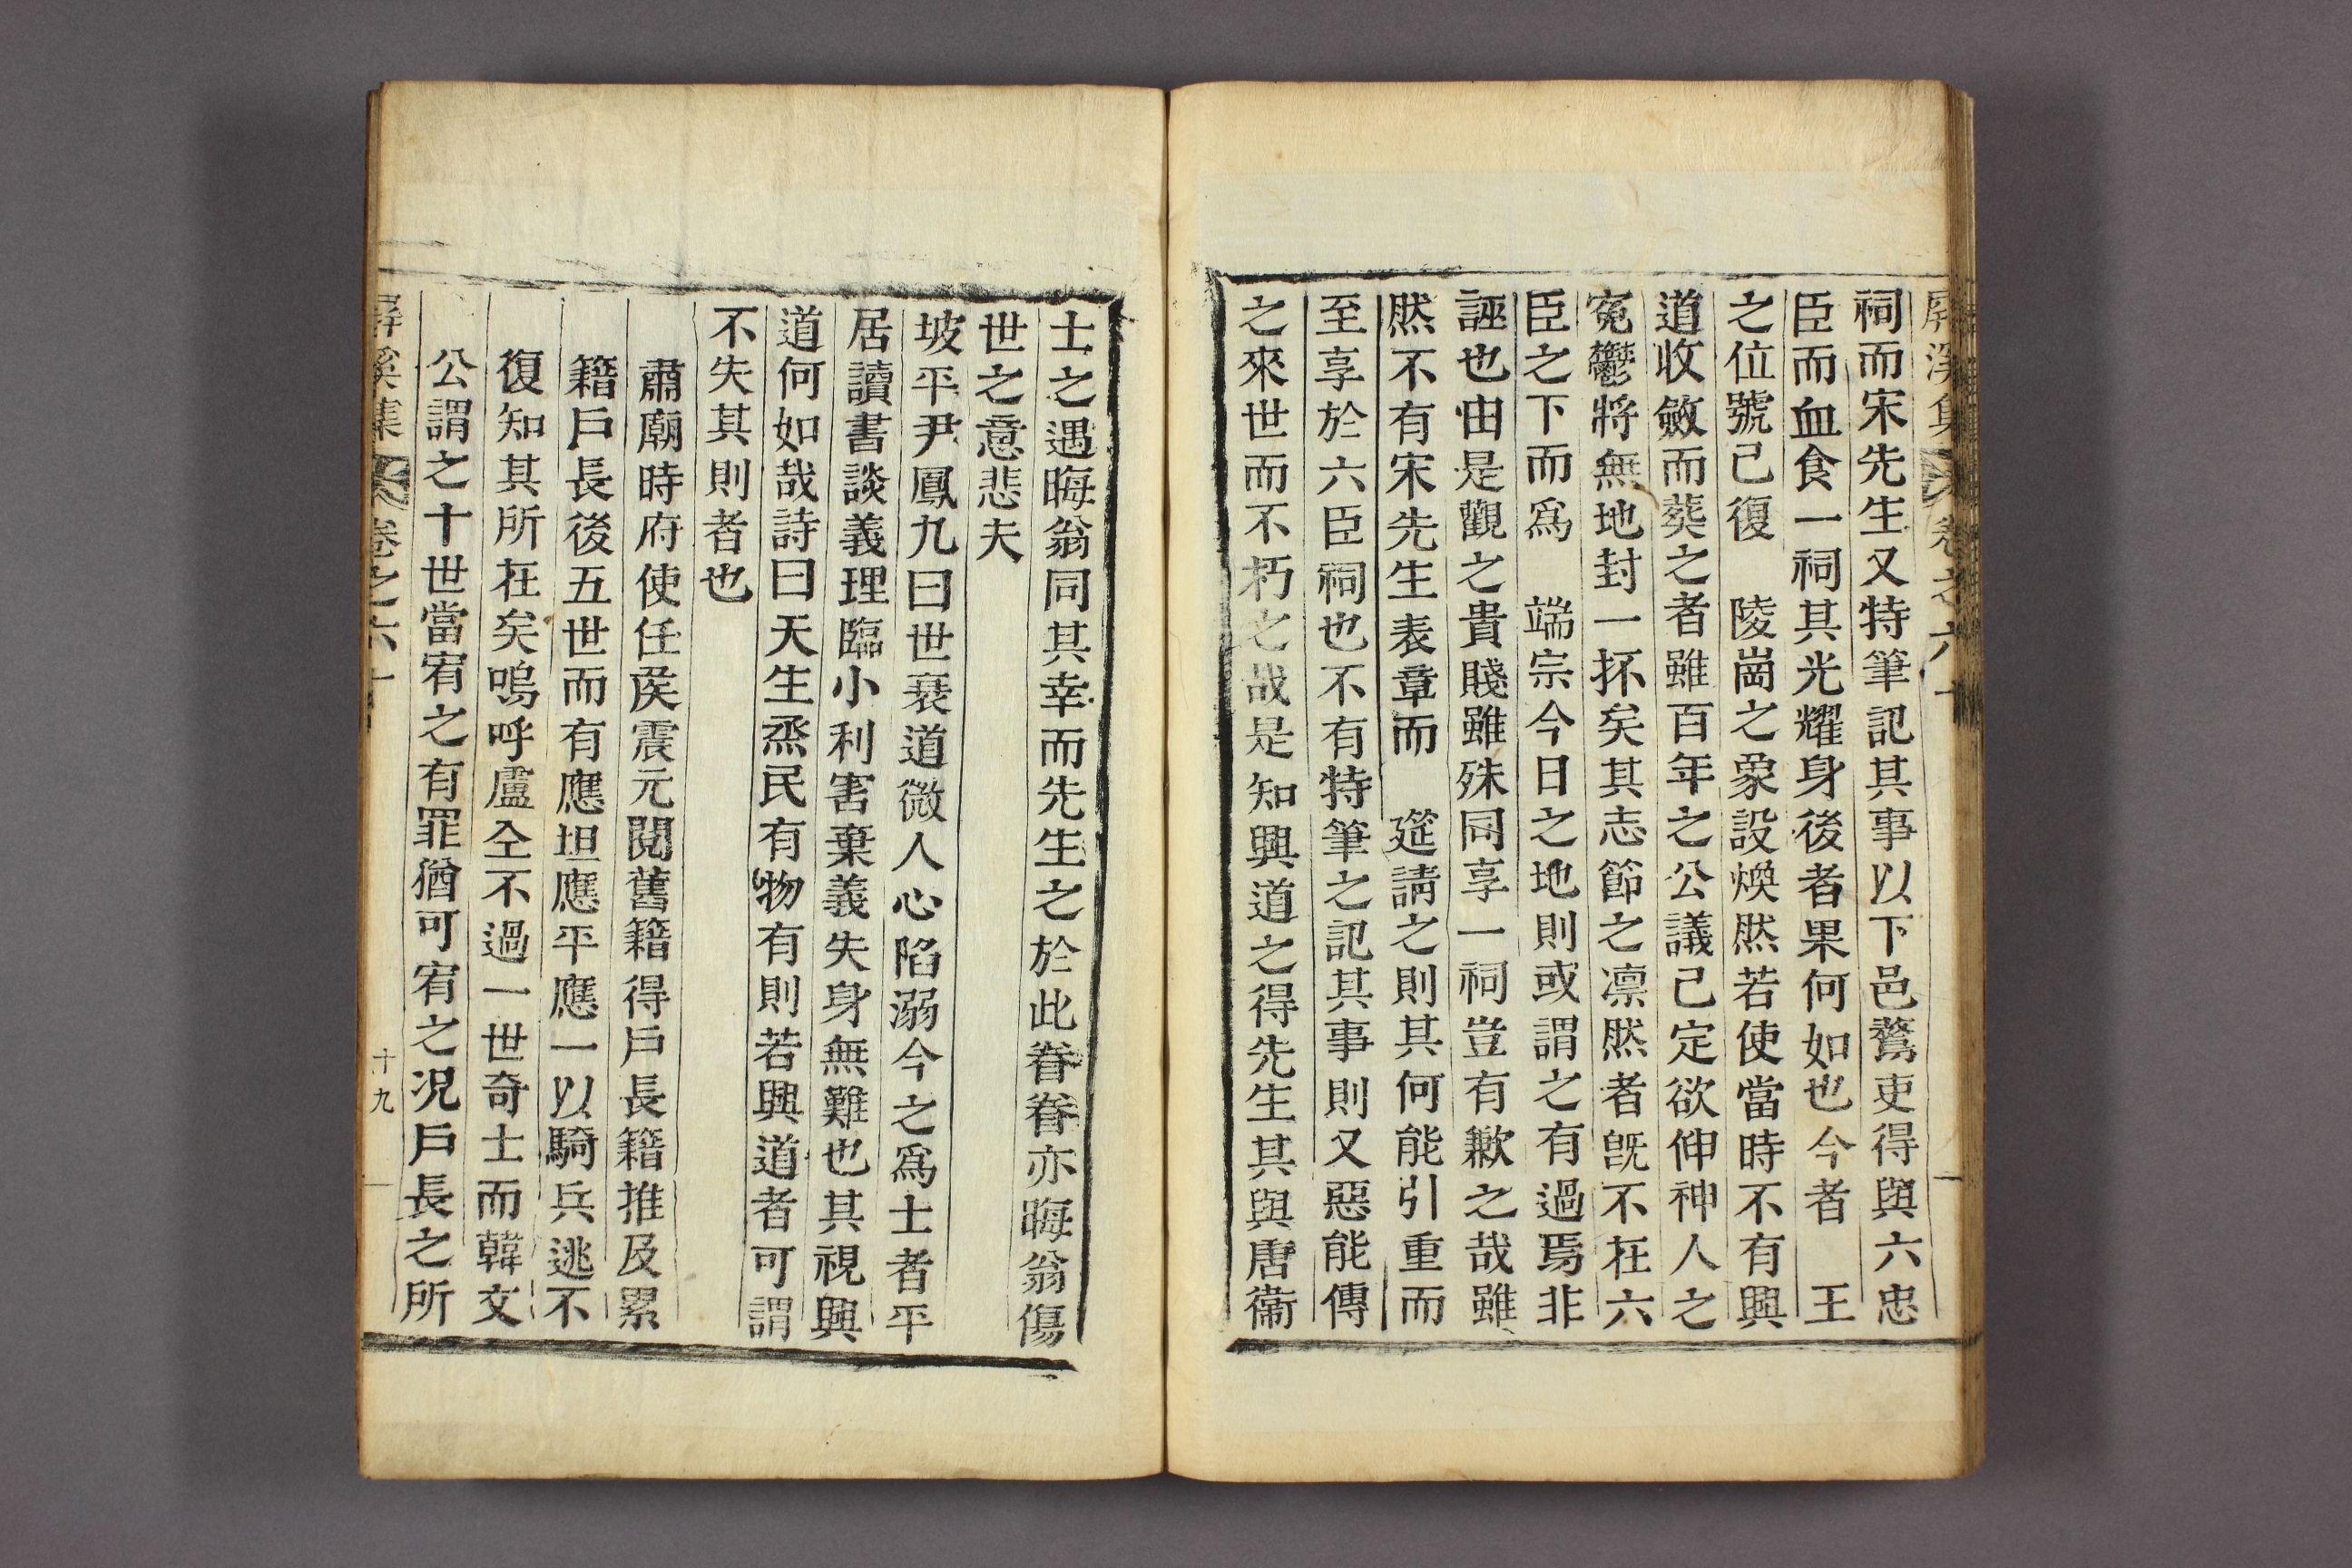 屛溪集 卷之六十
祠而宋先生又特筆記其事以下邑鶩吏得與六忠
臣而血食一祠其光耀身後者果何如也今者 王
之位號已復 陵崗之象設煥然若使當時不有興
道收斂而葬之者雖百年之公議已定欲伸神人之
寃鬱將無地封一抔矣其志節之凛然者旣不在六
臣之下而爲 端宗今日之地則或謂之有過焉非
誣也由是觀之貴賤雖殊同享一祠豈有歉之哉雖
然不有宋先生表章而 筵請之則其何能引重而
至享於六臣祠也不有特筆之記其事則又惡能傳
之來世而不朽之哉是知興道之得先生其與唐衛
士之遇晦翁同其幸而先生之於此眷眷亦晦翁傷
世之意悲夫
坡平尹鳳九曰世衰道微人心陷溺今之爲士者平
居讀書談義理臨小利害棄義失身無難也其視興
道何如哉詩曰天生烝民有物有則若興道者可謂
不失其則者也
肅廟時府使任侯震元閱舊籍得戶長籍推及累
籍戶長後五世而有應坦應平應一以騎兵逃不
復知其所在矣嗚呼盧仝不過一世奇士而韓文
公謂之十世當宥之有罪猶可宥之况戶長之所
屛溪集 卷之六十 十九